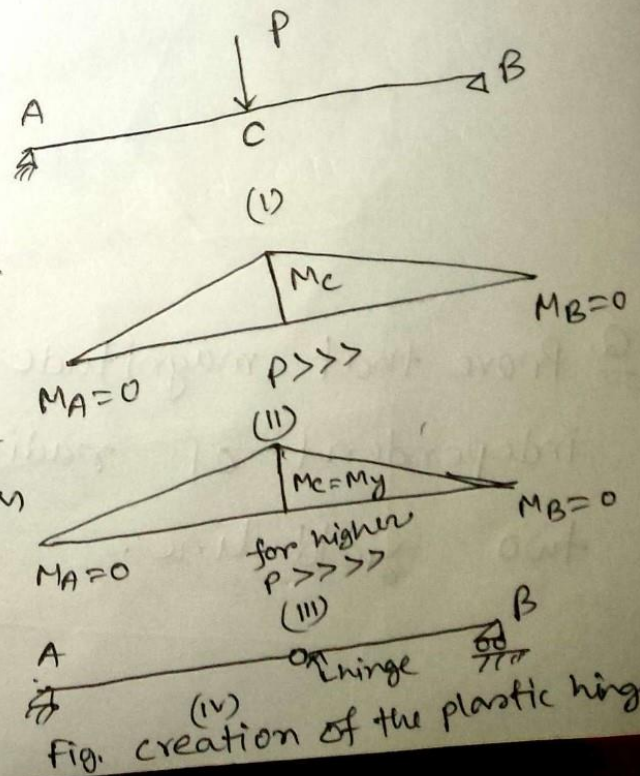 P
A
B
C
(I)
Mc
MB=0
MA=0
P>>>
(II)
Mc=My
MB=0
MA=0
for higher
P>>>>
(III)
B
A
hinge
(IV)
Fig. creation of the plastic hing